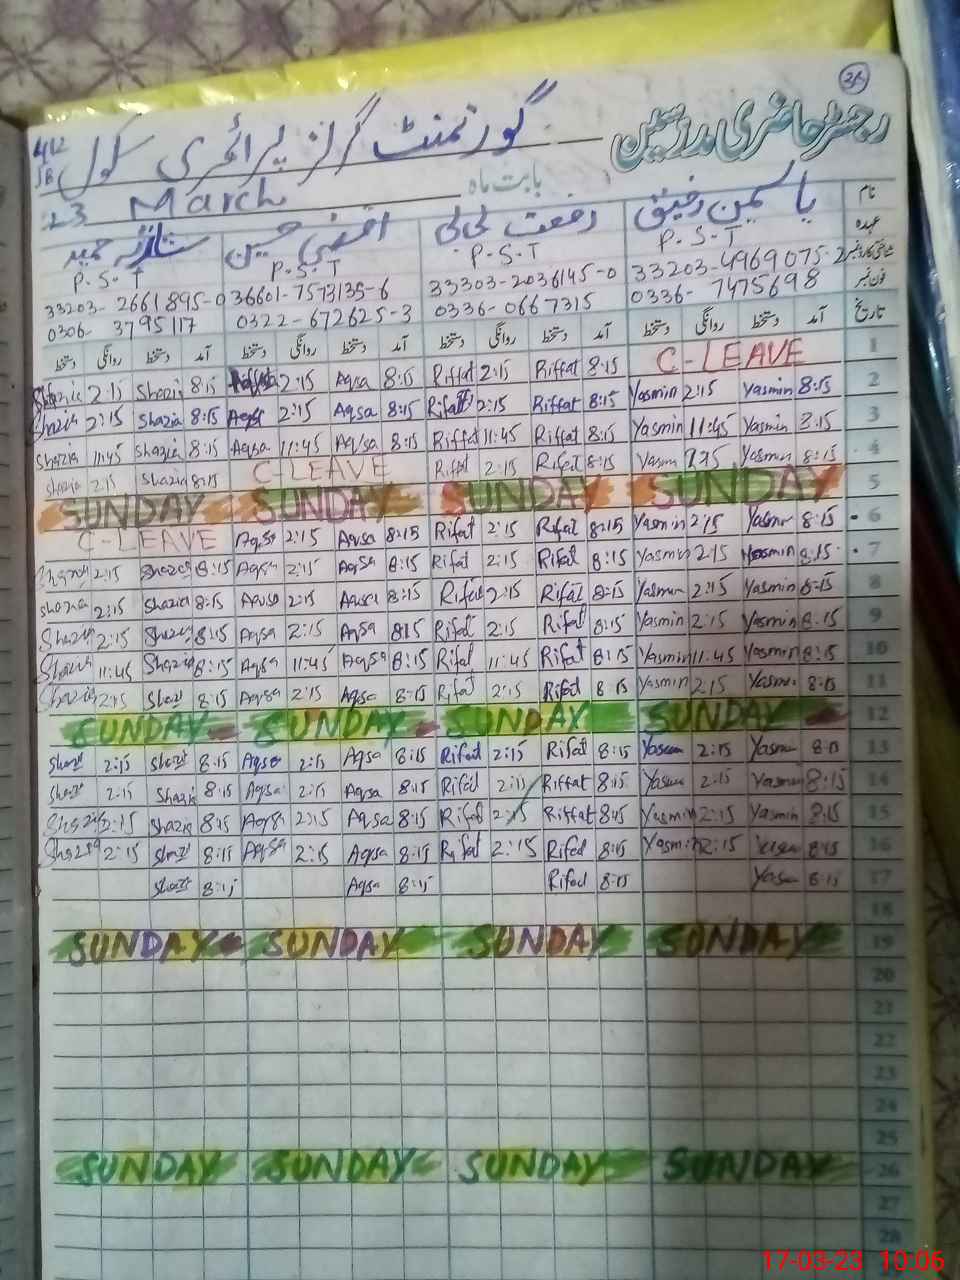 26
رجسٹر حاضری مدرسین
گورنمنٹ گرلز پرائمری سکول
بابت ماہ March 23
نام یاسمین رفیق رفعت بی بی اقصیٰ حسین شازیہ حمید
عہدہ P.S.T P.S.T P.S.T P.S.T
33203-4969075-2 33303-2036145-0 36601-7573135-6 33203-2661895-0
فون نمبر 0336-7475698 0336-0667315 0322-672625-3 0306-3795117
تاریخ آمد دستخط روانگی دستخط آمد دستخط روانگی دستخط آمد دستخط روانگی دستخط آمد دستخط روانگی دستخط
1 C-LEAVE 8:15 Riffat 2:15 Riffat 8:15 Aqsa 2:15 8:15 Shazia 2:15 Shazia
2 8:15 Yasmin 2:15 Yasmin 8:15 Riffat 2:15 8:15 Aqsa 2:15 Aqsa 8:15 Shazia 2:15 Shazia
3 8:15 Yasmin 11:45 Yasmin 8:15 Riffat 11:45 Riffat 8:15 Aqsa 11:45 Aqsa 8:15 Shazia 11:45 Shazia
4 8:15 Yasmin Yasmin 8:15 Rifat 2:15 Rifat C-LEAVE 8:15 Shazia 2:15 Shazia
5 SUNDAY SUNDAY SUNDAY SUNDAY
6 8:15 Yasmin 2:15 Yasmin 8:15 Rifat 2:15 Rifat 8:15 Aqsa 2:15 Aqsa C-LEAVE
7 8:15 Yasmin 2:15 Yasmin 8:15 Rifat 2:15 Rifat 8:15 Aqsa 2:15 Aqsa 8:15 Shazia 2:15
8 8:15 Yasmin 2:15 Yasmin 8:15 Rifat 2:15 Rifat 8:15 Aqsa 2:15 Aqsa 8:15 Shazia 2:15 Shazia
9 8:15 Yasmin 2:15 Yasmin 8:15 Rifat 2:15 Rifat 8:15 Aqsa 2:15 Aqsa 8:15 Shazia 2:15 Shazia
10 8:15 Yasmin 11:45 Yasmin 8:15 Rifat 11:45 Rifat 8:15 Aqsa 11:45 Aqsa 8:15 Shazia 11:45 Shazia
11 8:15 Yasmin 2:15 Yasmin 8:15 Rifat 2:15 Rifat 8:15 Aqsa 2:15 Aqsa 8:15 2:15 Shazia
12 SUNDAY SUNDAY SUNDAY SUNDAY
13 8:15 2:15 8:15 Rifat 2:15 Rifat 8:15 Aqsa 2:15 Aqsa 8:15 2:15
14 8:15 Yasmin 2:15 8:15 Riffat 2:15 Rifat 8:15 Aqsa 2:15 Aqsa 8:15 Shazia 2:15
15 8:15 Yasmin 2:15 Yasmin 8:15 Riffat 2:15 Rifat 8:15 Aqsa 2:15 Aqsa 8:15 Shazia 2:15 Shazia
16 8:15 2:15 Yasmin 8:15 Rifat 2:15 Rifat 8:15 Aqsa 2:15 Aqsa 8:15 2:15 Shazia
17 8:15 8:15 Rifat 8:15 Aqsa 8:15
18
19 SUNDAY SUNDAY SUNDAY SUNDAY
20
21
22
23
24
25
26 SUNDAY SUNDAY SUNDAY SUNDAY
27
28
17-03-23 10:06